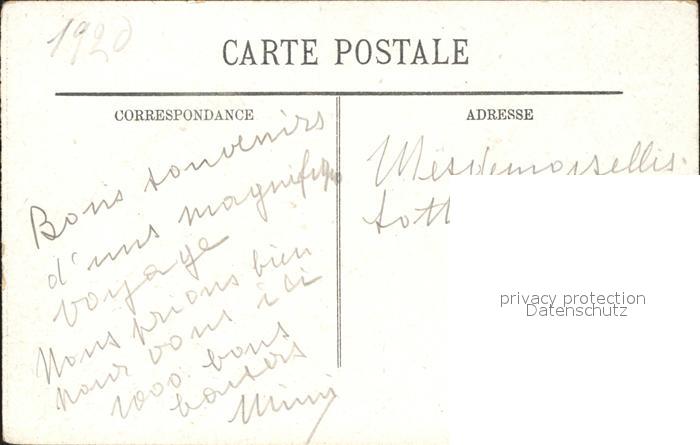 1920
CARTE POSTALE
CORRESPONDANCE
ADRESSE
Bons souvenirs
d'uns magnifique
voyage
Nous prions bien
pour vous ici
1000 bons
baisers
Mimi
Mesdemoiselles
privacy protection
Datenschutz